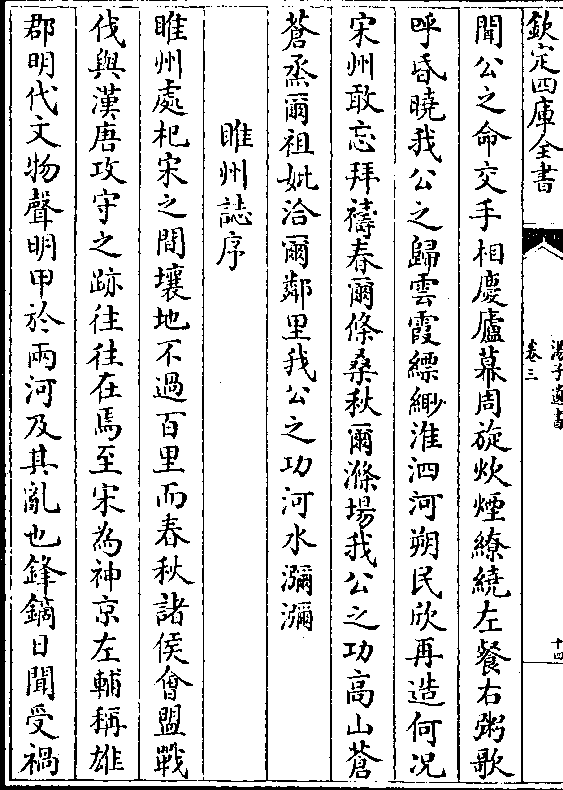 欽定四庫全書
湯子遺書
卷三
十四
聞公之命交手相慶廬幕周旋炊煙繚繞左餐右粥歌
呼昏曉我公之歸雲霞縹緲淮泗河朔民欣再造何況
宋州敢忘拜禱春爾條桑秋爾滌場我公之功高山蒼
蒼烝爾祖妣洽爾鄰里我公之功河水瀰瀰
睢州誌序
睢州處杞宋之間壤地不過百里而春秋諸侯會盟戰
伐與漢唐攻守之跡往往在焉至宋為神京左輔稱雄
郡明代文物聲明甲於兩河及其亂也鋒鏑日聞受禍